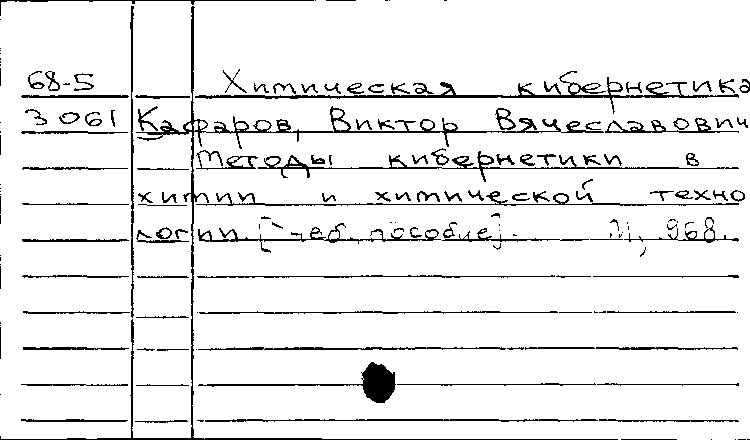 68-5 Химическая кибернетика
3061 Кафаров, Виктор Вячеславович
Методы кибернетики в
химии и химической техно
логии. [Учеб. пособие]. М, 968.